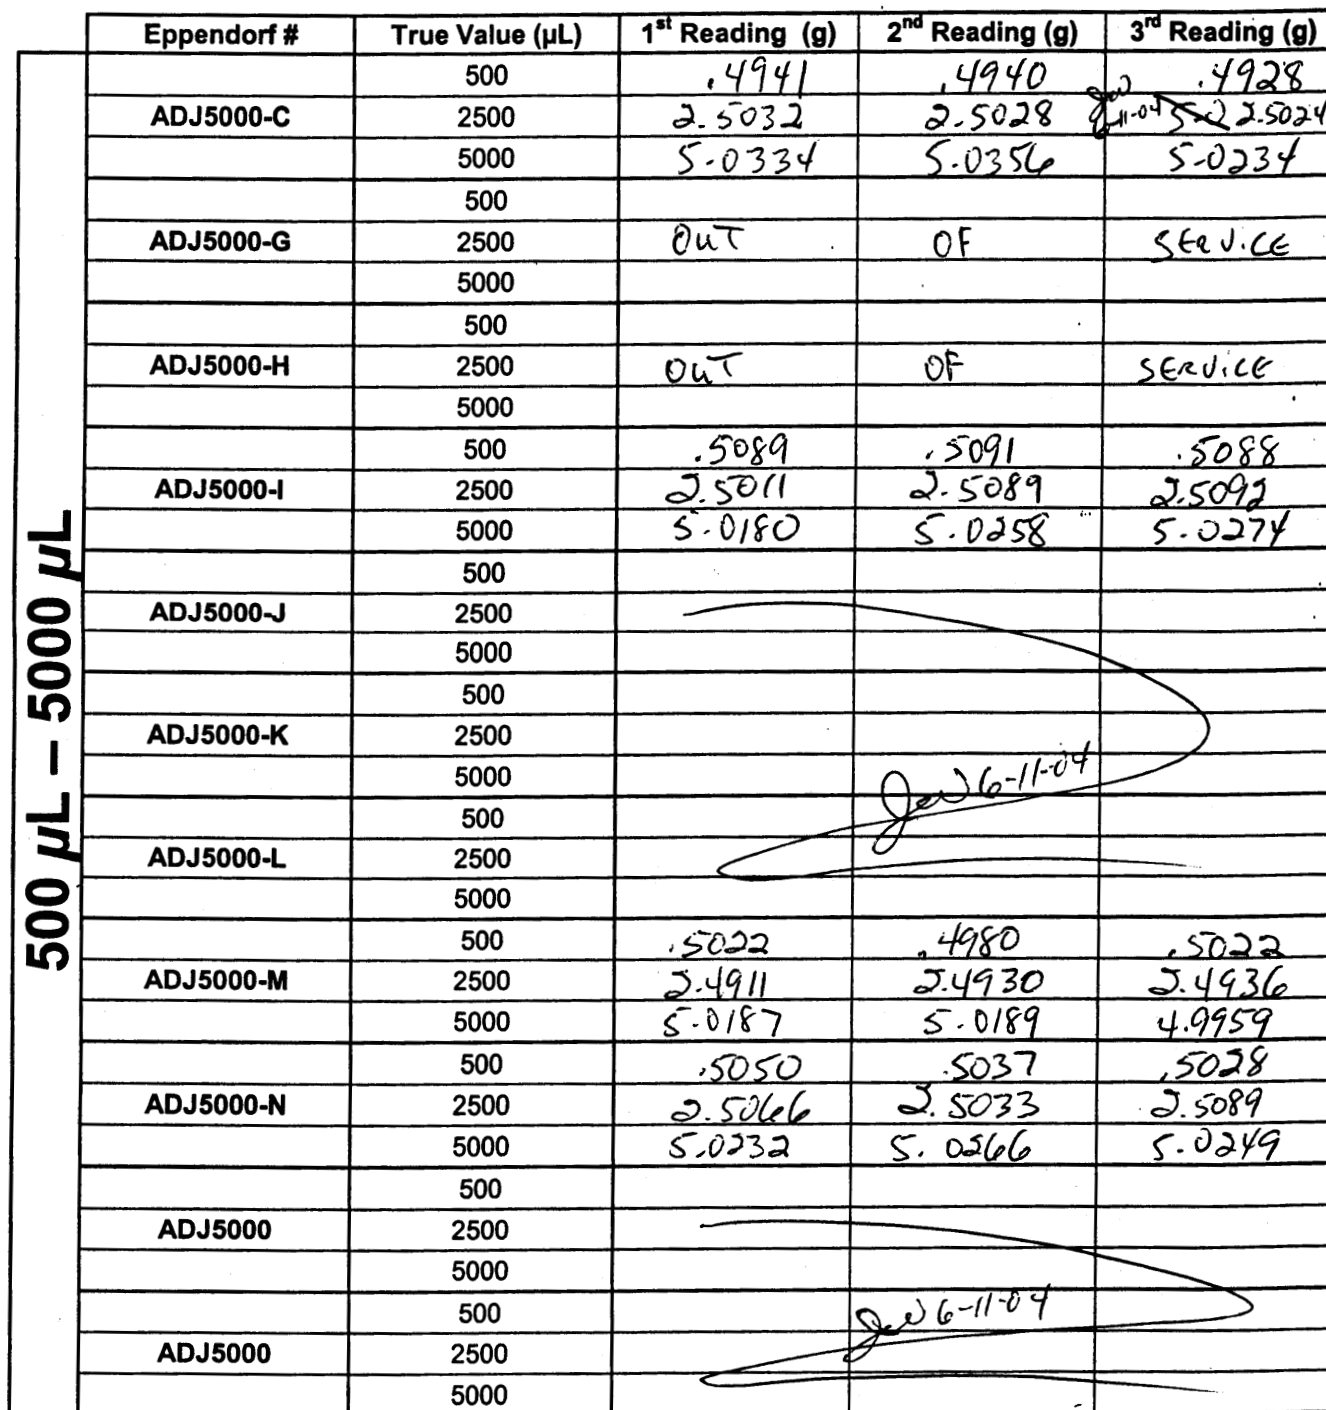 Eppendorf # True Value (µL) 1st Reading (g) 2nd Reading (g) 3rd Reading (g)
500 µL – 5000 µL
500 .4941 .4940 .4928
ADJ5000-C 2500 2.5032 2.5028 11-04 5.02 2.5024
5000 5.0334 5.0356 5.0234
500
ADJ5000-G 2500 OUT OF SERVICE
5000
500
ADJ5000-H 2500 OUT OF SERVICE
5000
500 .5089 .5091 .5088
ADJ5000-I 2500 2.5011 2.5089 2.5092
5000 5.0180 5.0258 5.0274
500
ADJ5000-J 2500
5000
500
ADJ5000-K 2500
5000 6-11-04
500
ADJ5000-L 2500
5000
500 .5022 .4980 .5022
ADJ5000-M 2500 2.4911 2.4930 2.4936
5000 5.0187 5.0189 4.9959
500 .5050 .5037 .5028
ADJ5000-N 2500 2.5066 2.5033 2.5089
5000 5.0232 5.0266 5.0249
500
ADJ5000 2500
5000
500 6-11-04
ADJ5000 2500
5000